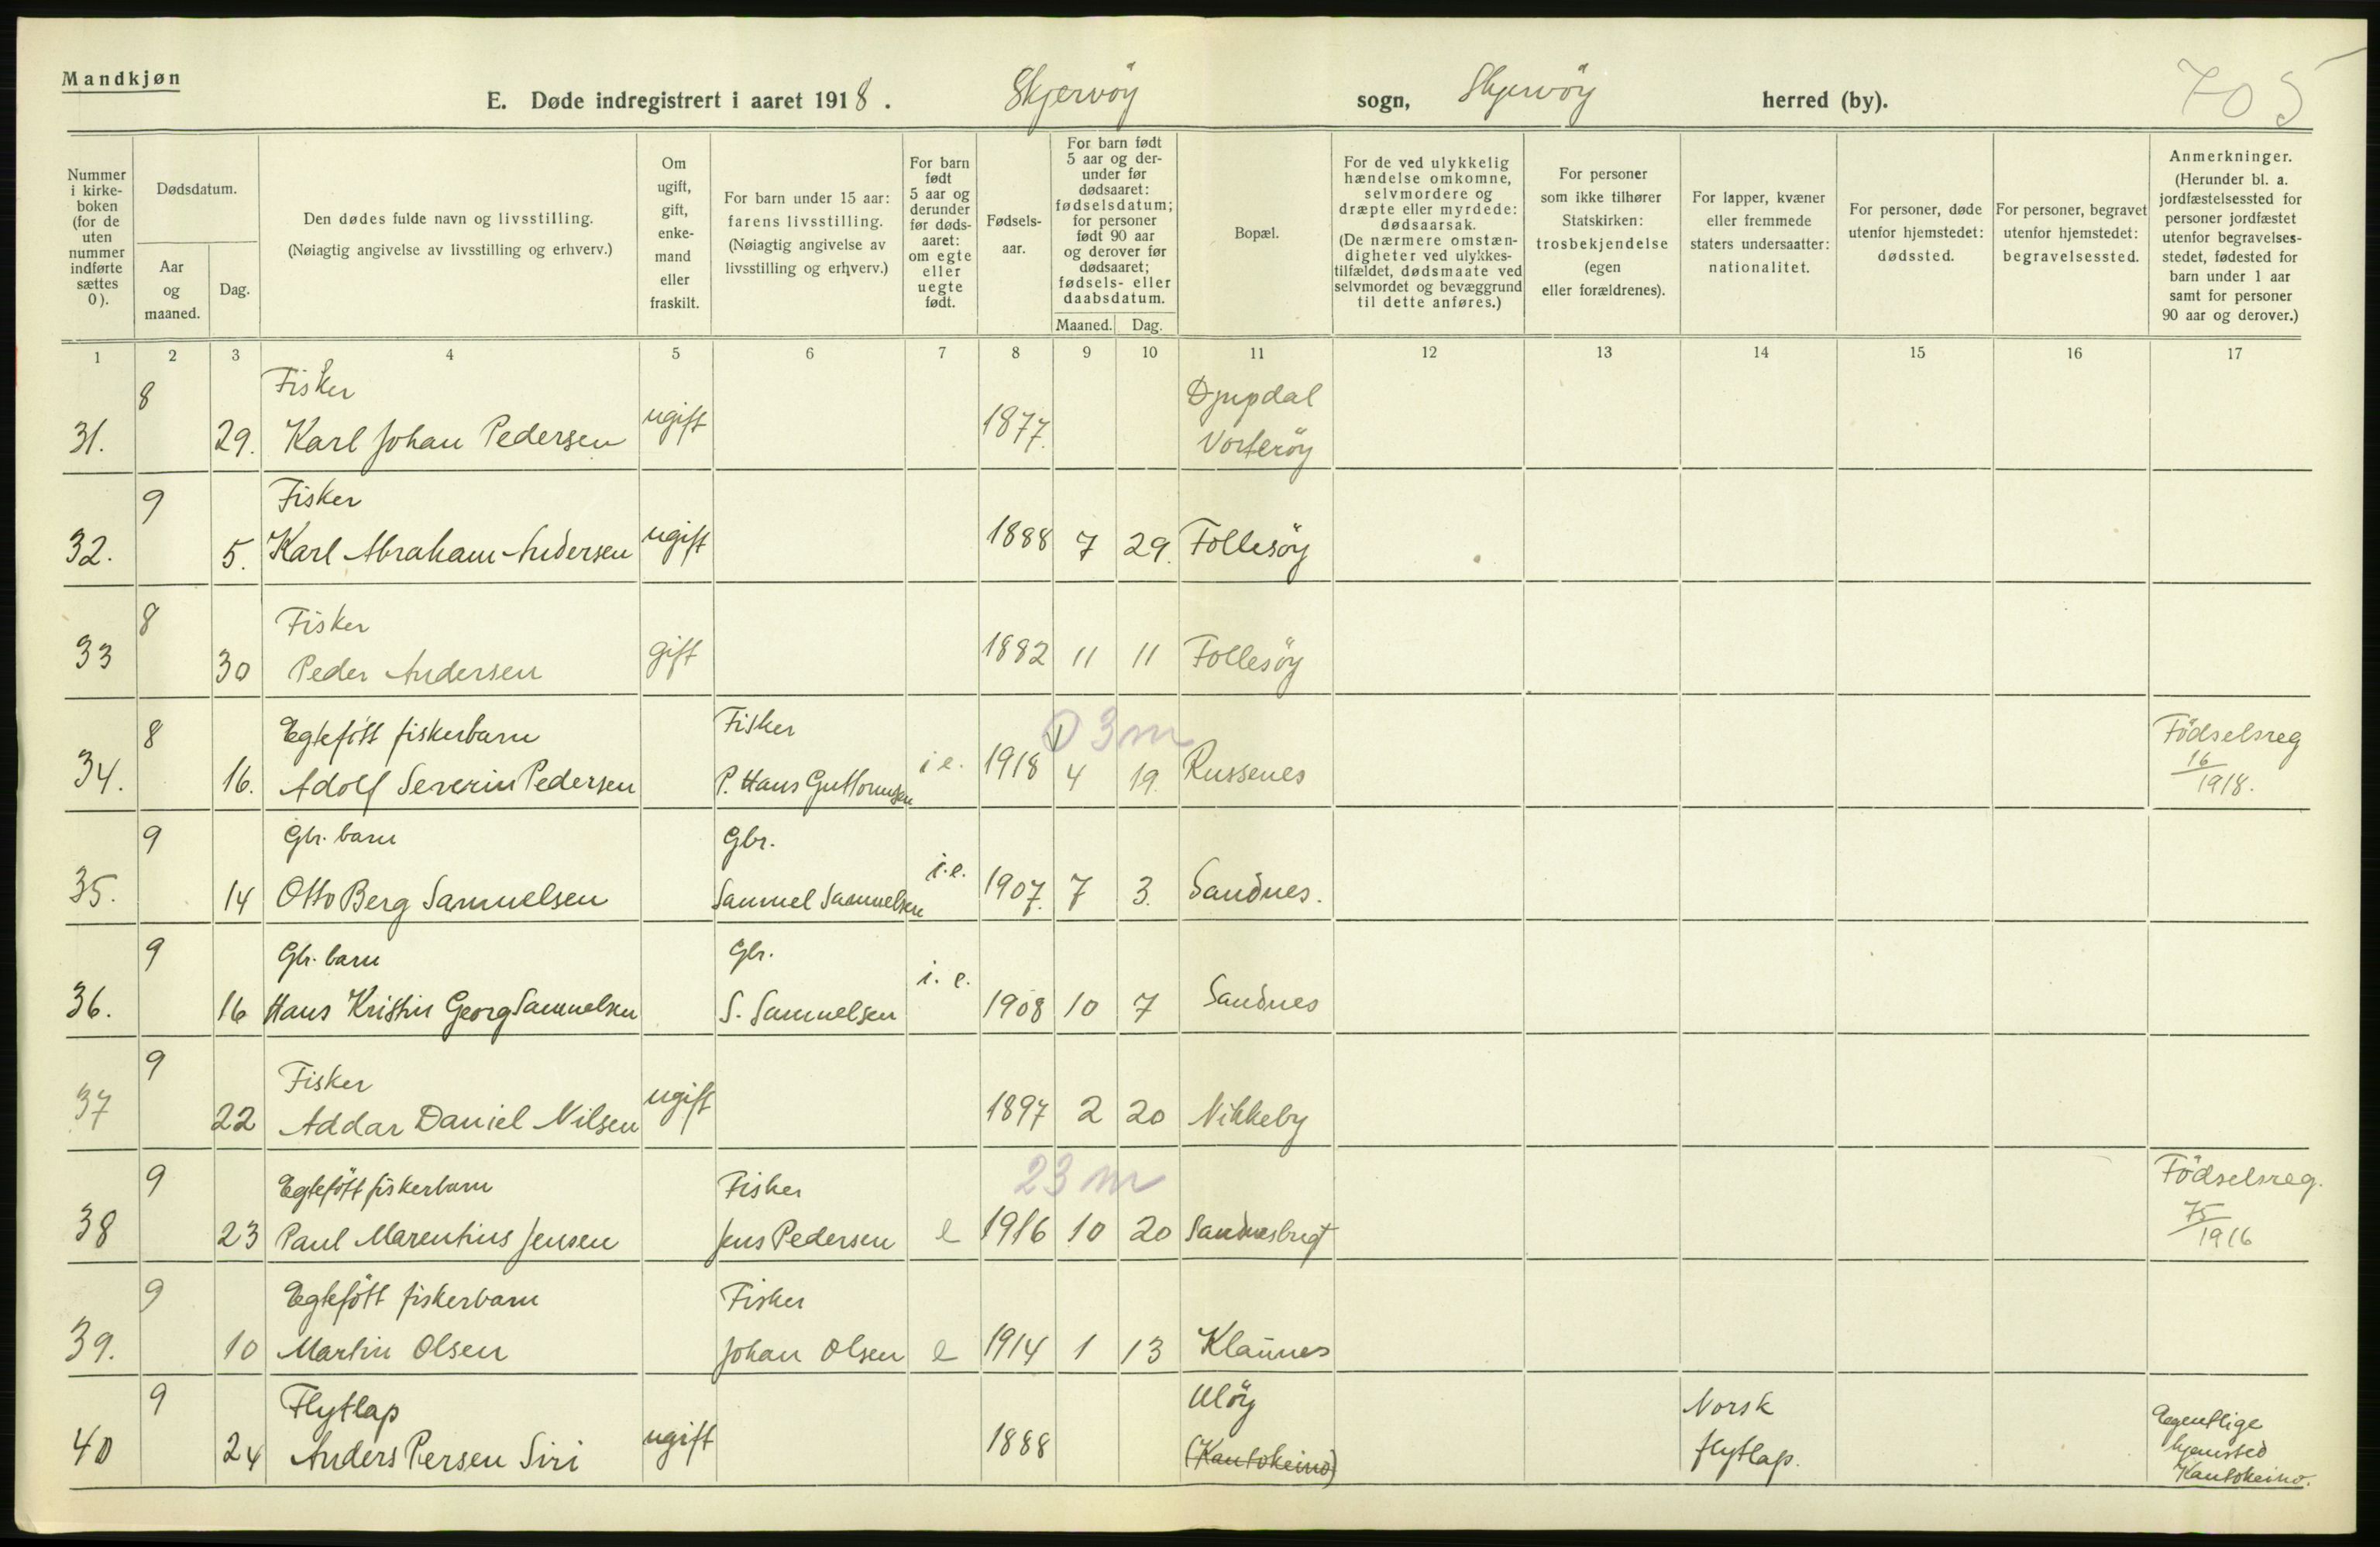 Mandkjøn
E. Døde indregistrert i aaret 1918. Skjervöy sogn, Skjervöy herred (by). 705
Nummer i kirke-boken (for de uten nummer indførte sættes 0).
Dødsdatum.
Aar og maaned.
Dag.
Den dødes fulde navn og livsstilling.
(Nøiagtig angivelse av livsstilling og erhverv.)
Om ugift, gift, enke-mand eller fraskilt.
For barn under 15 aar: farens livsstilling.
(Nøiagtig angivelse av livsstilling og erhverv.)
For barn født 5 aar og derunder før døds-aaret: om egte eller uegte født.
Fødsels-aar.
For barn født 5 aar og der-under før dødsaaret: fødselsdatum; for personer født 90 aar og derover før dødsaaret; fødsels- eller daabsdatum.
Maaned. Dag.
Bopæl.
For de ved ulykkelig hændelse omkomne, selvmordere og dræpte eller myrdede: dødsaarsak.
(De nærmere omstæn-digheter ved ulykkes-tilfældet, dødsmaate ved selvmordet og bevæggrund til dette anføres.)
For personer som ikke tilhører Statskirken: trosbekjendelse (egen eller forældrenes).
For lapper, kvæner eller fremmede staters undersaatter: nationalitet.
For personer, døde utenfor hjemstedet: dødssted.
For personer, begravet utenfor hjemstedet: begravelsessted.
Anmerkninger.
(Herunder bl. a. jordfæstelsessted for personer jordfæstet utenfor begravelses-stedet, fødested for barn under 1 aar samt for personer 90 aar og derover.)
1 2 3 4 5 6 7 8 9 10 11 12 13 14 15 16 17
8 Fisker Djupdal
31. 29. Karl Johan Pedersen ugift 1877. Vorteröy
9 Fisker
32. 5. Karl Abraham Andersen ugift 1888 7 29. Follesöy
8 Fisker
33 30 Peder Andersen gift 1882 11 11 Follesöy
8 Egtefött fiskerbarn Fisker 0 3m Födselsreg
34. 16. Adolf Severin Pedersen P. Hans Guttormsen i e. 1918 4 19. Russenes 16/1918.
9 Gbr. barn Gbr.
35. 14 Otto Berg Samuelsen Samuel Samuelsen i.e. 1907. 7 3. Sandnes.
9 Gbr. barn Gbr.
36. 16 Hans Kristin Georg Samuelsen S. Samuelsen i. e. 1908 10 7 Sandnes
9 Fisker
37 22 Addar Daniel Nilsen ugift 1897 2 20 Nikkeby
9 Egtefött fiskerbarn Fisker 23 m Födselsreg.
38 23 Paul Marentius Jensen Jens Pedersen e 1916 10 20 Sandnesbugt 75/1916
9 Egtefött fiskerbarn Fisker
39. 10 Martin Olsen Johan Olsen e 1914 1 13 Klaŭnes
9 Flytlap Ulöy Norsk Egentlige
40 24 Anders Persen Siri ugift 1888 (Kautokeino) flytlap. hjemsted
Kautokeino.